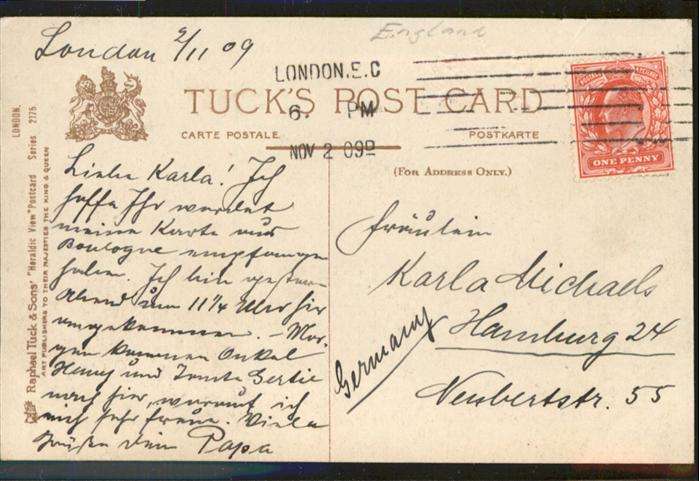 London 2/11 09
England
LONDON. E.C
6. PM
NOV 2 09
TUCK'S POST CARD
CARTE POSTALE
POSTKARTE
(FOR ADDRESS ONLY.)
ONE PENNY
LONDON.
Raphael Tuck & Sons' "Heraldic View" Postcard Series 2175
ART PUBLISHERS TO THEIR MAJESTIES THE KING & QUEEN
Liebe Karla! Ich
hoffe Ihr werdet
meine Karte aus
Boulogne empfangen
haben. Ich bin gestern
Abend um 11 1/4 Uhr hier
angekommen. – Mor-
gen kommen Onkel
Henry und Tante Gertie
nach hier, worauf ich
mich sehr freue. Viele
Grüße Dein Papa
Fräulein
Karla Michaels
Hamburg 24
Neubertstr. 55
Germany